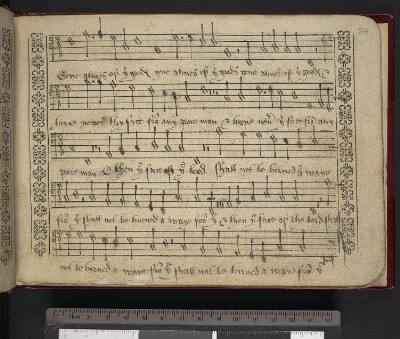 Geve almes of yͤ goodes geve almes of yͤ goodes geve almes of yͤ goodes &
turne never thy face frō any pore man & turne never yͤ face frō any
pore man & then yͤ face of yͤ lord shall not be turned a waye
frō yͤ shall not be turned a waye frō yͤ & then yͤ face of the lord shall
not be turned a waye frō yͤ shall not be turned a waye frō yͤ